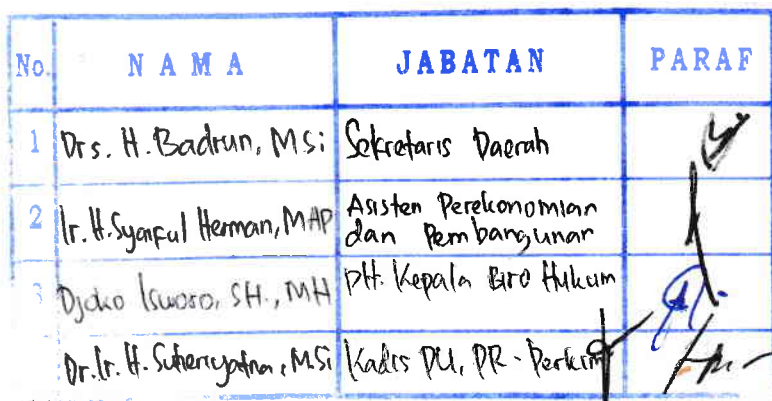 No. N A M A JABATAN PARAF
1 Drs. H. Badrun, MSi Sekretaris Daerah
2 Ir. H. Syaiful Herman, MAP Asisten Perekonomian
dan Pembangunan
3 Djoko Isworo, SH., MH PH. Kepala Biro Hukum
Dr. Ir. H. Suheriyatna, MSi Kadis PU, PR - Perkim